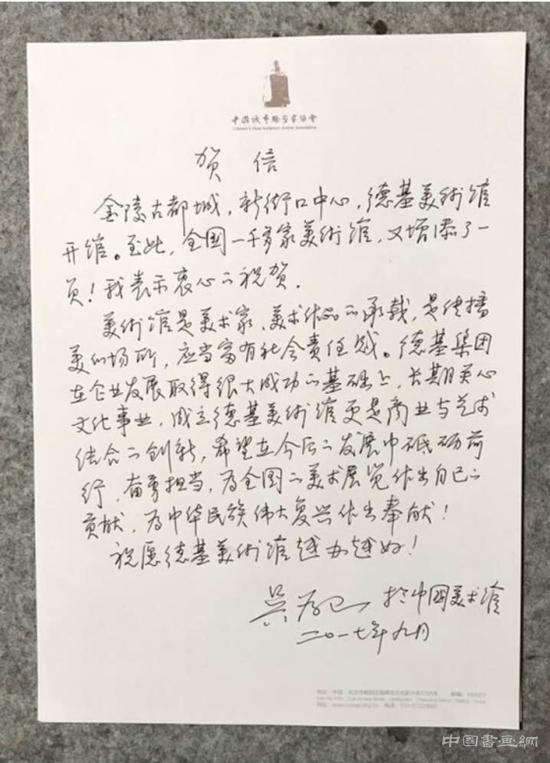 中国城市雕塑家协会
贺信
金陵古都城，新街口中心，德基美術馆
开馆。至此，全国一千多家美術馆，又增添了一
员！我表示衷心的祝贺．
美術馆是美术家、美术作品的承载，是传播
美的场所，应当富有社会责任感。德基集团
在企业发展取得很大成功的基础上，长期关心
文化事业，成立德基美術馆更是商业与艺术
结合的创新，希望在今后的发展中砥砺前
行，奋勇担当，为全国的美术展览作出自己的
贡献，为中华民族伟大复兴作出奉献！
祝愿德基美術馆越办越好！
吴为山 於中国美术馆
二〇一七年九月
中国書畫網